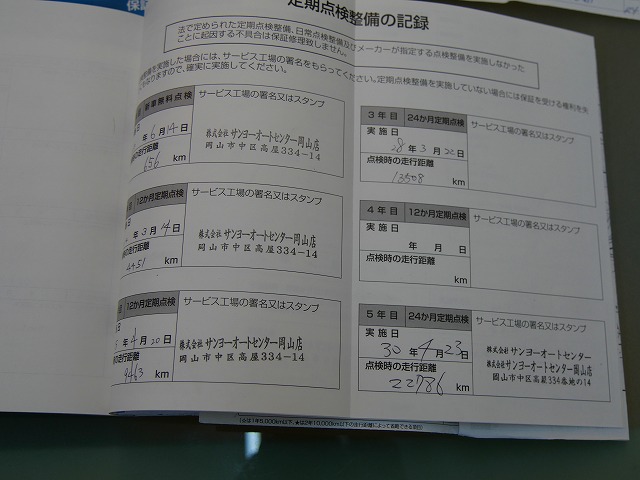 定期点検整備の記録
法で定められた定期点検整備、日常点検整備及びメーカーが指定する点検整備を実施しなかった
ことに起因する不具合は保証修理致しません。
整備を実施した場合には、サービス工場の署名をもらってください。定期点検整備を実施していない場合には保証を受ける権利を失
なりますので、確実に実施してください。
新車無料点検 サービス工場の署名又はスタンプ
年 6月14日
の走行距離
656 km
株式会社 サンヨーオートセンター岡山店
岡山市中区高屋334-14
12か月定期点検 サービス工場の署名又はスタンプ
年 3月14日
の走行距離
4451 km
株式会社 サンヨーオートセンター岡山店
岡山市中区高屋334-14
12か月定期点検 サービス工場の署名又はスタンプ
年 4月20日
の走行距離
9463 km
株式会社 サンヨーオートセンター岡山店
岡山市中区高屋334-14
3年目 24か月定期点検 サービス工場の署名又はスタンプ
実施日
28年3月22日
点検時の走行距離
13508 km
4年目 12か月定期点検 サービス工場の署名又はスタンプ
実施日
年 月 日
点検時の走行距離
km
5年目 24か月定期点検 サービス工場の署名又はスタンプ
実施日
30年4月23日
点検時の走行距離
22786 km
株式会社 サンヨーオートセンター
株式会社 サンヨーオートセンター岡山店
岡山市中区高屋334番地の14